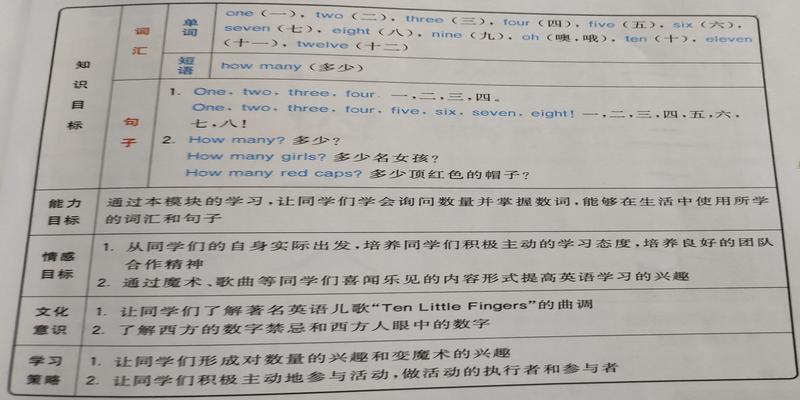 知识目标
词汇
单词
one（一），two（二），three（三），four（四），five（五），six（六），
seven（七），eight（八），nine（九），oh（噢，哦），ten（十），eleven
（十一），twelve（十二）
短语
how many（多少）
句子
1. One，two，three，four. 一，二，三，四。
One，two，three，four，five，six，seven，eight! 一，二，三，四，五，六，
七，八！
2. How many? 多少？
How many girls? 多少名女孩？
How many red caps? 多少顶红色的帽子？
能力目标
通过本模块的学习，让同学们学会询问数量并掌握数词，能够在生活中使用所学
的词汇和句子
情感目标
1. 从同学们的自身实际出发，培养同学们积极主动的学习态度，培养良好的团队
合作精神
2. 通过魔术、歌曲等同学们喜闻乐见的内容形式提高英语学习的兴趣
文化意识
1. 让同学们了解著名英语儿歌“Ten Little Fingers”的曲调
2. 了解西方的数字禁忌和西方人眼中的数字
学习策略
1. 让同学们形成对数量的兴趣和变魔术的兴趣
2. 让同学们积极主动地参与活动，做活动的执行者和参与者